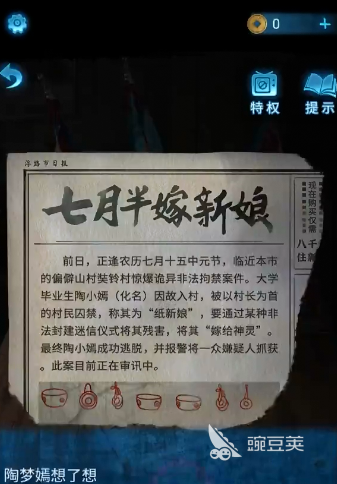 0
特权
提示
七月半嫁新娘
前日，正逢农历七月十五中元节，临近本市
的偏僻山村奘铃村惊爆诡异非法拘禁案件。大学
毕业生陶小嫣（化名）因故入村，被以村长为首
的村民囚禁，称其为“纸新娘”，要通过某种非
法封建迷信仪式将其残害，将其“嫁给神灵”。
最终陶小嫣成功逃脱，并报警将一众嫌疑人抓获
。此案目前正在审讯中。
现在购买仅需
八千
住
豌豆荚
陶梦嫣想了想